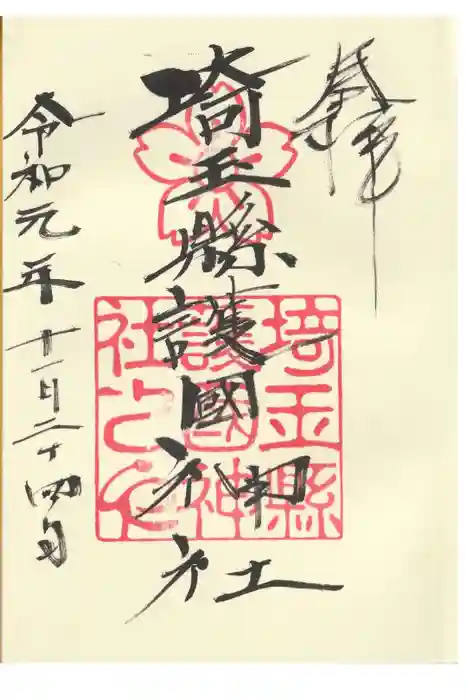 奉拝
埼玉縣護國神社
令和元年十一月二十四日
埼玉縣
護國神
社之印